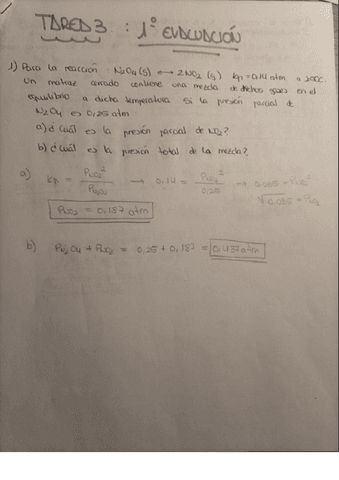 TAREA 3 : 1º EVALUACIÓN
1) Para la reacción : N₂O₄ (g) ⟷ 2NO₂ (g) Kp = 0,14 atm a
Un matraz cerrado contiene una mezcla de dichos gases en el
equilibrio a dicha temperatura si la presión parcial de
N₂O₄ es 0,25 atm :
a) ¿Cuál es la presión parcial de NO₂?
b) ¿Cuál es la presión total de la mezcla?
a) Kp = PNO₂² / PN₂O₄ → 0,14 = PNO₂² / 0,25 → 0,035 = PNO₂²
√0,035 = PNO₂
PNO₂ = 0,187 atm
b) PN₂O₄ + PNO₂ = 0,25 + 0,187 = 0,437 atm